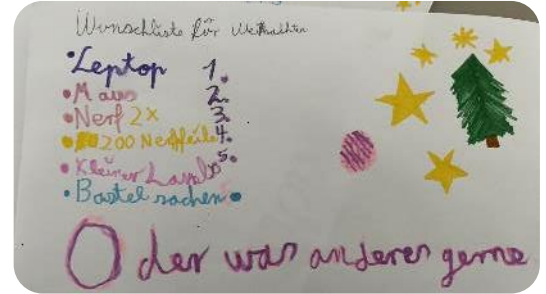 Wunschliste für Weihnachten
• Leptop 1.
• Maus 2.
• Nerf 2x 3.
• 200 Nerfpfeile 4.
• Kleiner 5.
• Bastel sachen •
Oder was anderes gerne